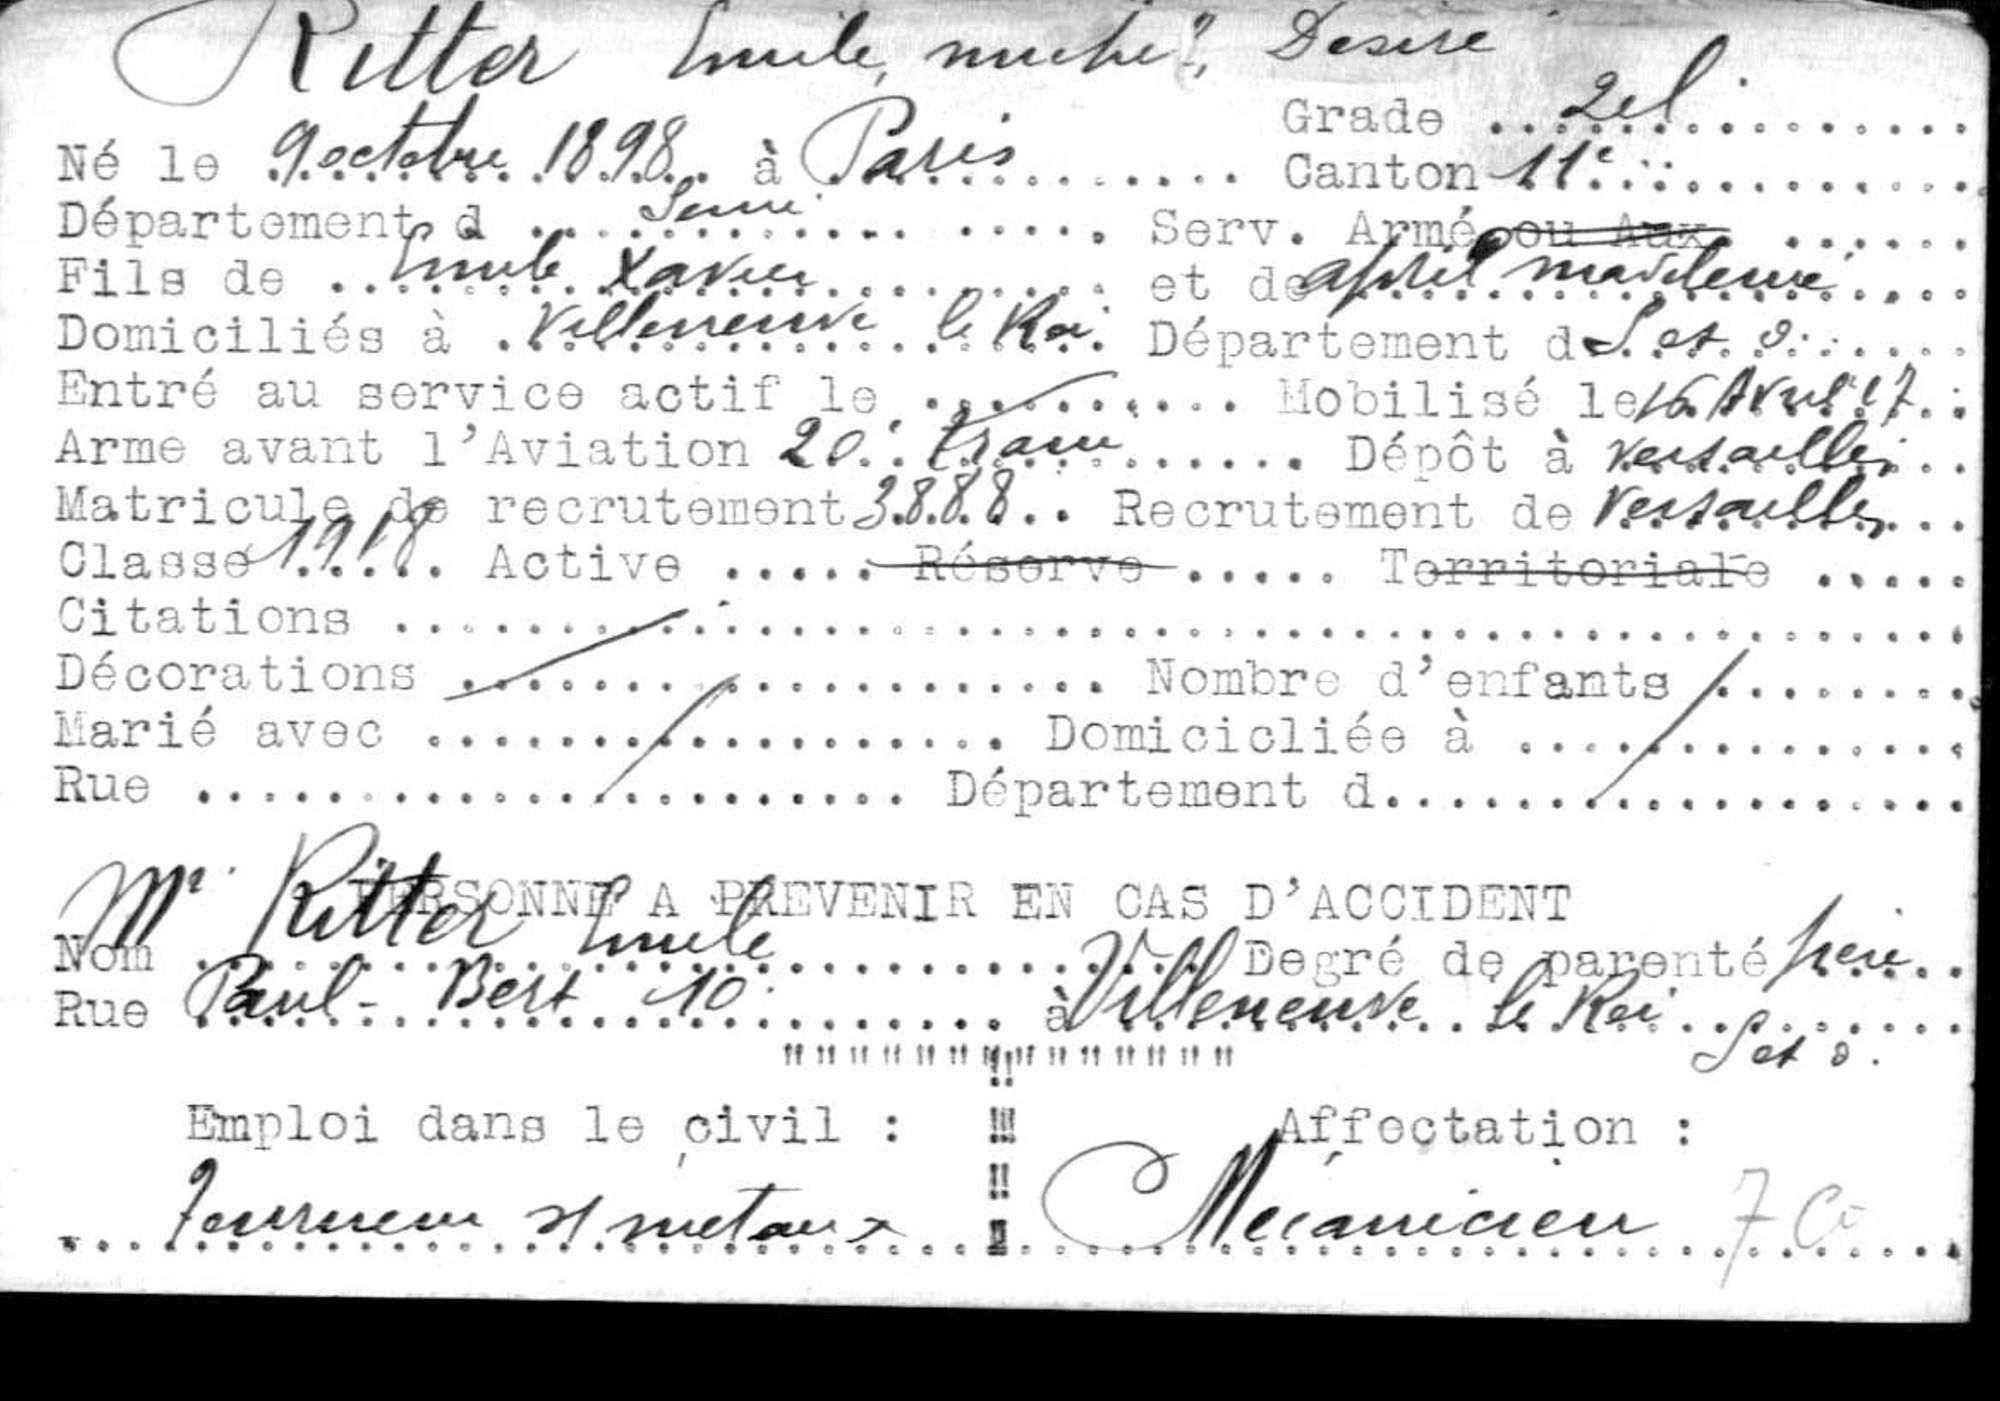 Ritter Emile, Desire
Grade 2el
Né le 9 octobre 1898 à Paris Canton 11e
Département d Seine Serv. Armé ou Aux.
Fils de Emile Xavier et de april madeleine
Domiciliés à Villeneuve le Roi Département d S. et. O.
Entré au service actif le Mobilisé le 16 Avril 17
Arme avant l'Aviation 20e train Dépôt à Versailles
Matricule de recrutement 3888 Recrutement de Versailles
Classe 1918 Active Réserve Territoriale
Citations
Décorations Nombre d'enfants
Marié avec Domicicliée à
Rue Département d
PERSONNE A PREVENIR EN CAS D'ACCIDENT
Nom Mr Ritter Emile Degré de parenté père
Rue Paul-Bert 10 à Villeneuve le Roi
S et O.
Emploi dans le civil : Affectation :
Tourneur s/ metaux Mecanicien